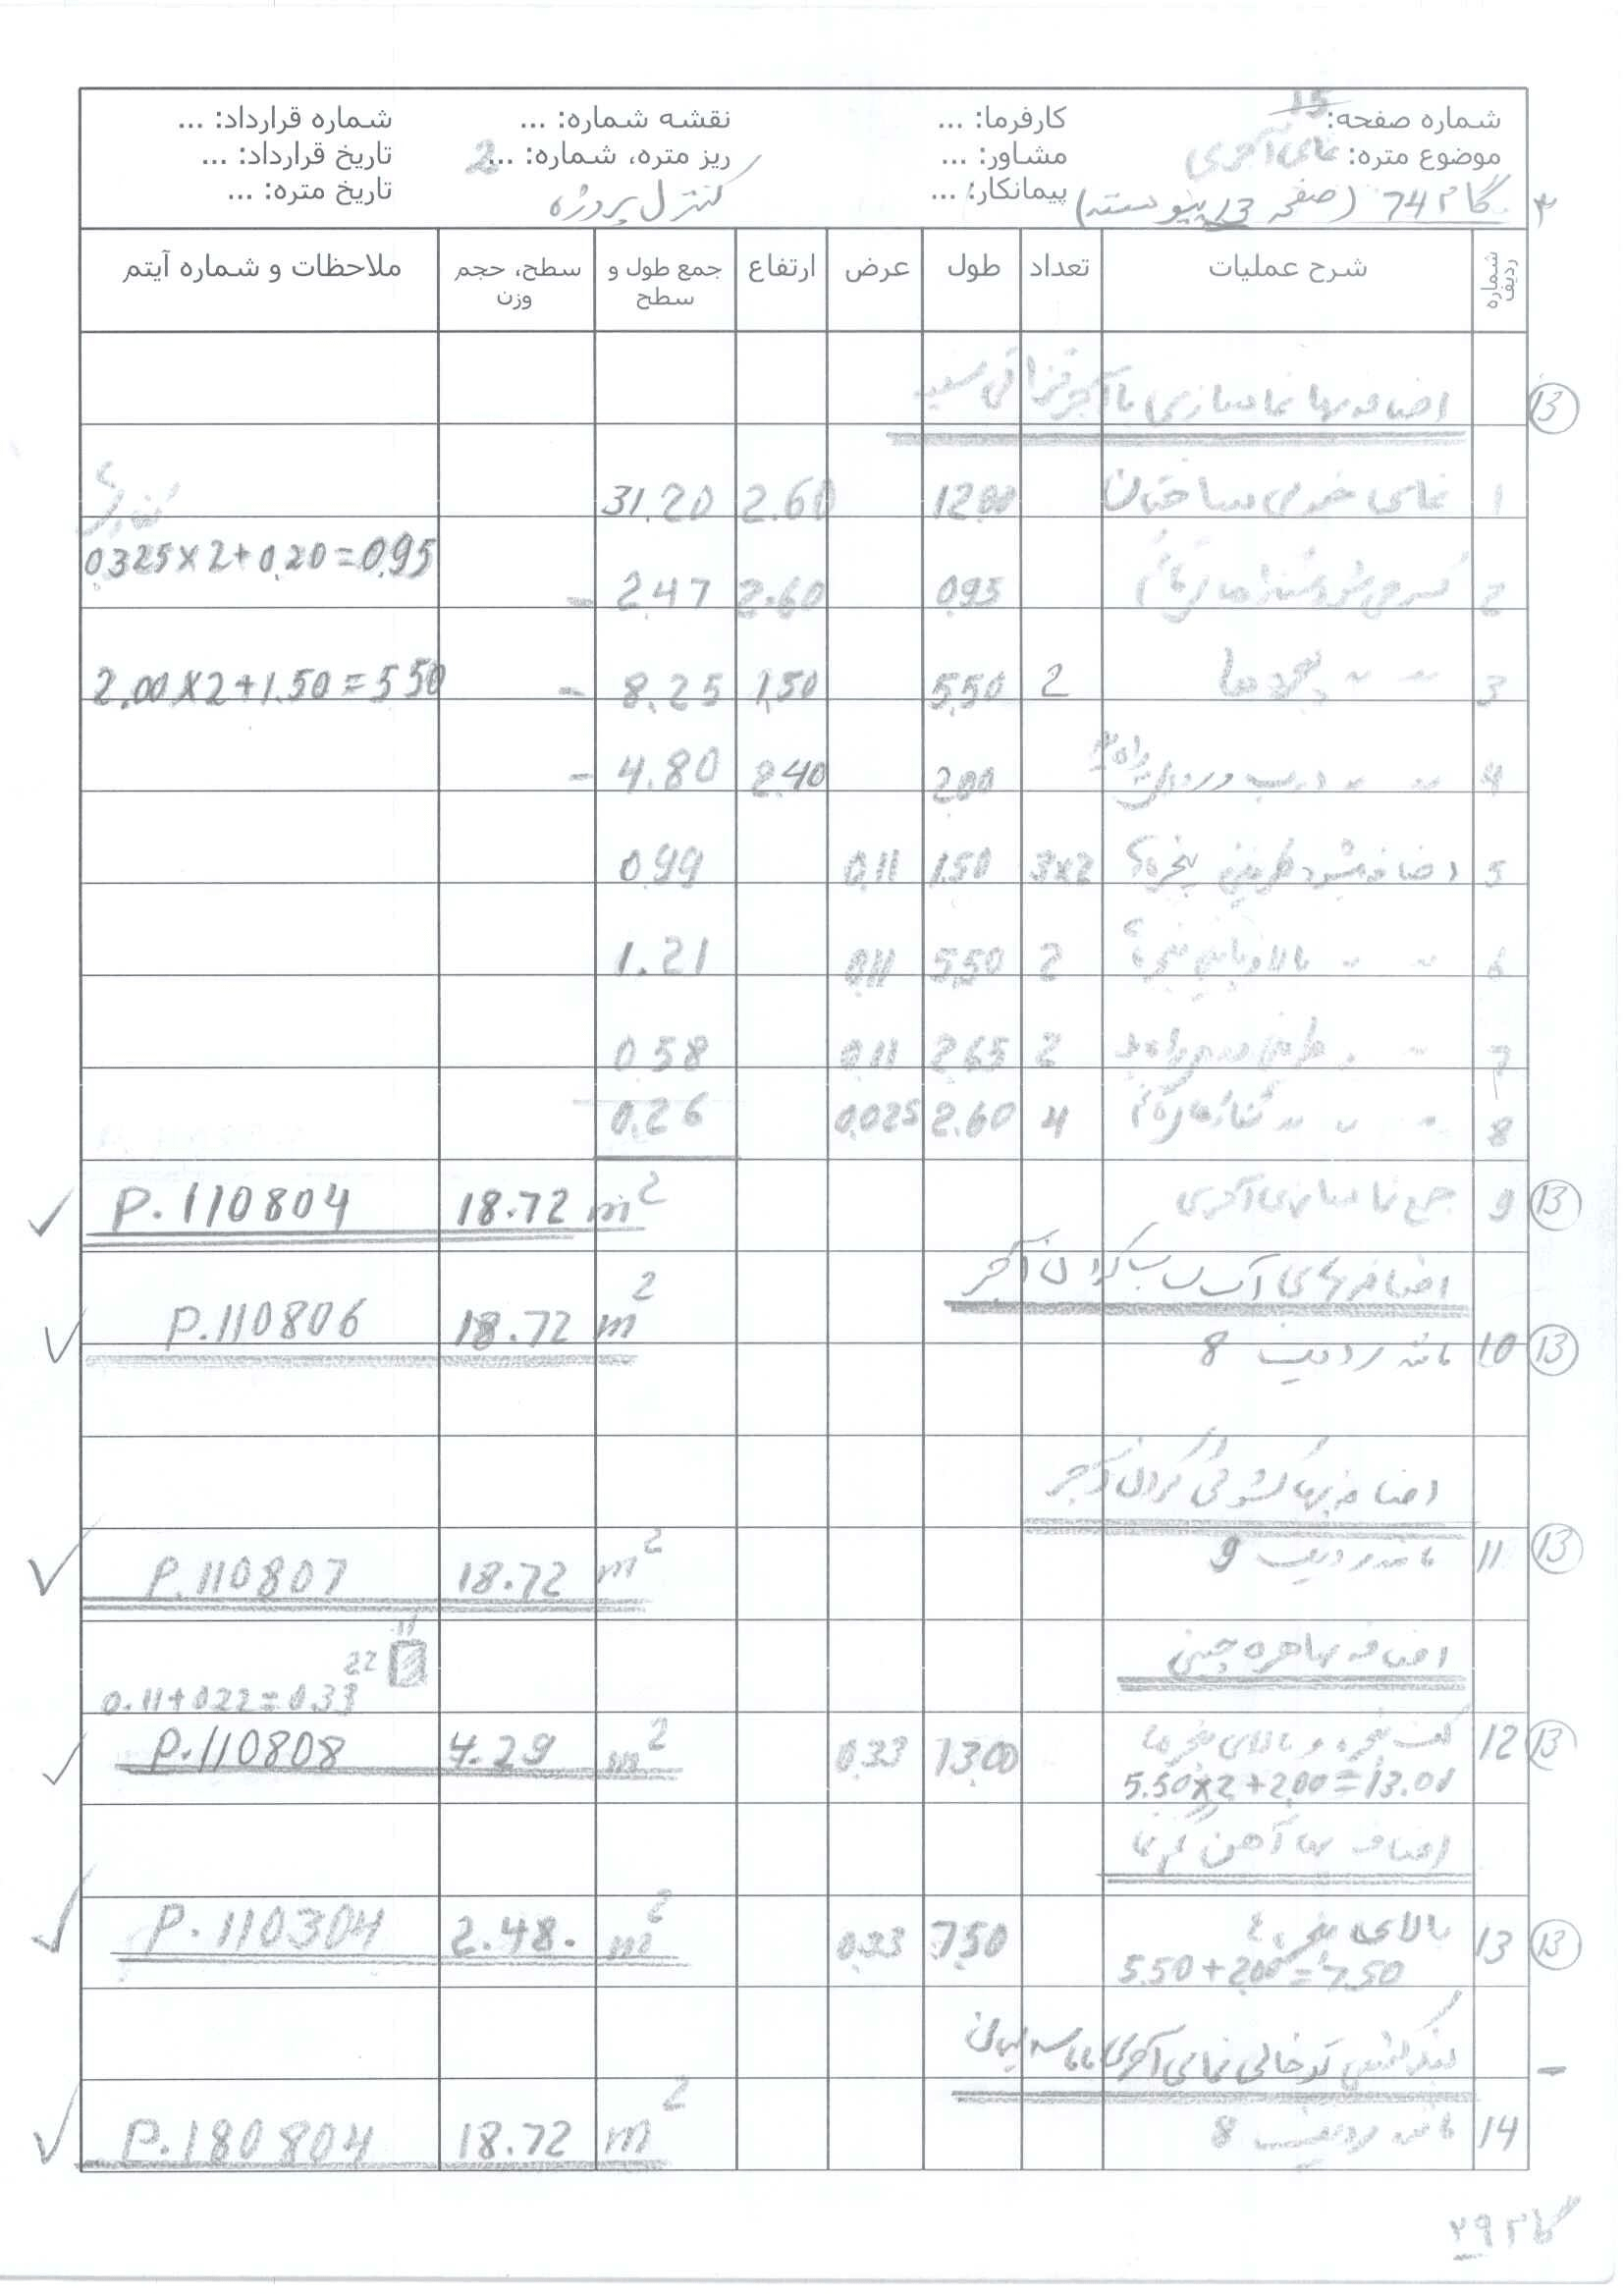 شماره صفحه: 15
موضوع متره: نمای آجری
۳ گام 74 (صفحه 13 پیوسته)
کارفرما: ...
مشاور: ...
پیمانکار: ...
نقشه شماره: ...
ریز متره، شماره: ... 2
کنترل پروژه
شماره قرارداد: ...
تاریخ قرارداد: ...
تاریخ متره: ...
شماره ردیف شرح عملیات تعداد طول عرض ارتفاع جمع طول و سطح سطح، حجم وزن ملاحظات و شماره آیتم
13 اضافه بها نماسازی با آجر قزاقی سفید
1 نمای عمومی ساختمان 12.00 2.60 31.20
2 0.95 2.60 2.47 - 0.325×2+0.20=0.95
3 " " پنجره ها 2 5.50 1.50 8.25 - 2.00×2+1.50=5.50
4 " " درب ورودی 2.00 2.40 4.80 -
5 اضافه میشود طرفین پنجره 3×2 1.50 0.11 0.99
6 " " بالا و پایین پنجره 2 5.50 0.11 1.21
7 " " 2 2.65 0.11 0.58
8 " " " 4 2.60 0.025 0.26
13 9 جمع نماسازی آجری m2 18.72 P.110804
اضافه بهای آب ساب کردن آجر
13 10 مانند ردیف 8 m2 18.72 P.110806
اضافه بها کشوئی کردن آجر
13 11 مانند ردیف 9 m2 18.72 P.110807
اضافه بها هره چینی
11
22
0.11+0.22=0.33
13 12 کف پنجره و بالای پنجره ها 13.00 0.33 m2 4.29 P.110808
5.50×2+2.00=13.00
اضافه بها آهن گم نما
13 13 بالای پنجره 7.50 0.33 m2 2.48 P.110304
5.50+2.00=7.50
- بندکشی توخالی نمای آجری با ماسه سیمان
14 مانند ردیف 8 m2 18.72 P.180804